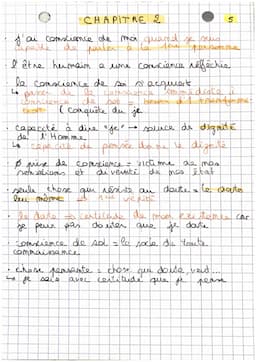 CHAPITRE 2
5
• j'ai conscience de moi quand je suis
capable de parler à la 1ère personne
• l'être humain a une conscience réfléchie
la conscience de soi s'acquiert
↳ passer de la conscience immédiate à
conscience de soi
( conquête du je
• capacité à dire "je" → source de dignité
de l'Homme
↳ capacité de pensée donne la dignité
∅ prise de conscience = victime de nos
sensations et diversité de nos état
• seule chose qui résiste au doute = le doute
lui même et 1ère vérité
• le doute → certitude de mon existence car
je peux pas douter que je doute
• conscience de soi = le socle de toute
connaissance
• chose pensante = chose qui doute, veut...
↳ je sais avec certitude que je pense